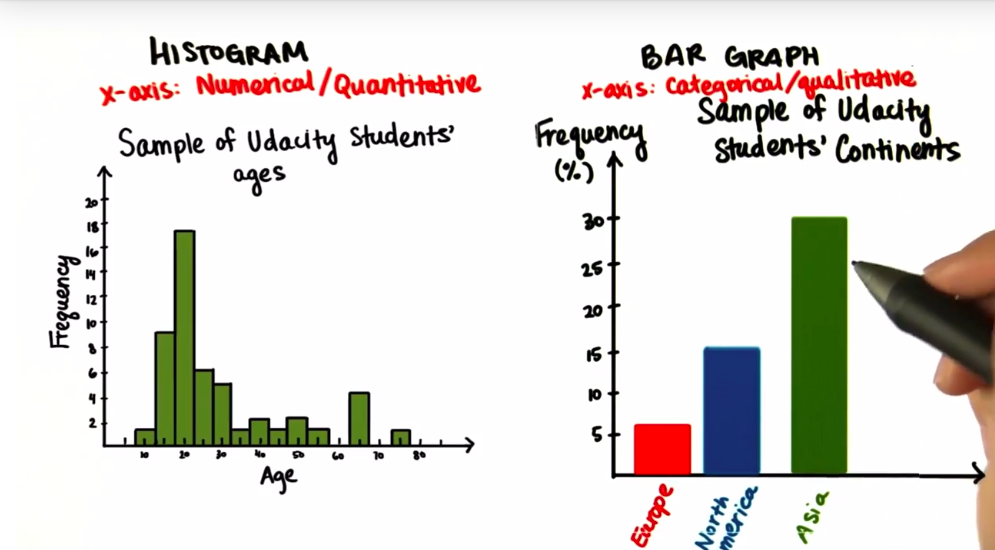 HISTOGRAM
x-axis: Numerical/Quantitative
Sample of Udacity Students'
ages
Frequency
20
18
16
14
12
10
8
6
4
2
10 20 30 40 50 60 70 80
Age
BAR GRAPH
x-axis: Categorical/qualitative
Sample of Udacity
Students' Continents
Frequency
(%)
30
25
20
15
10
5
Europe
North
merica
Asia